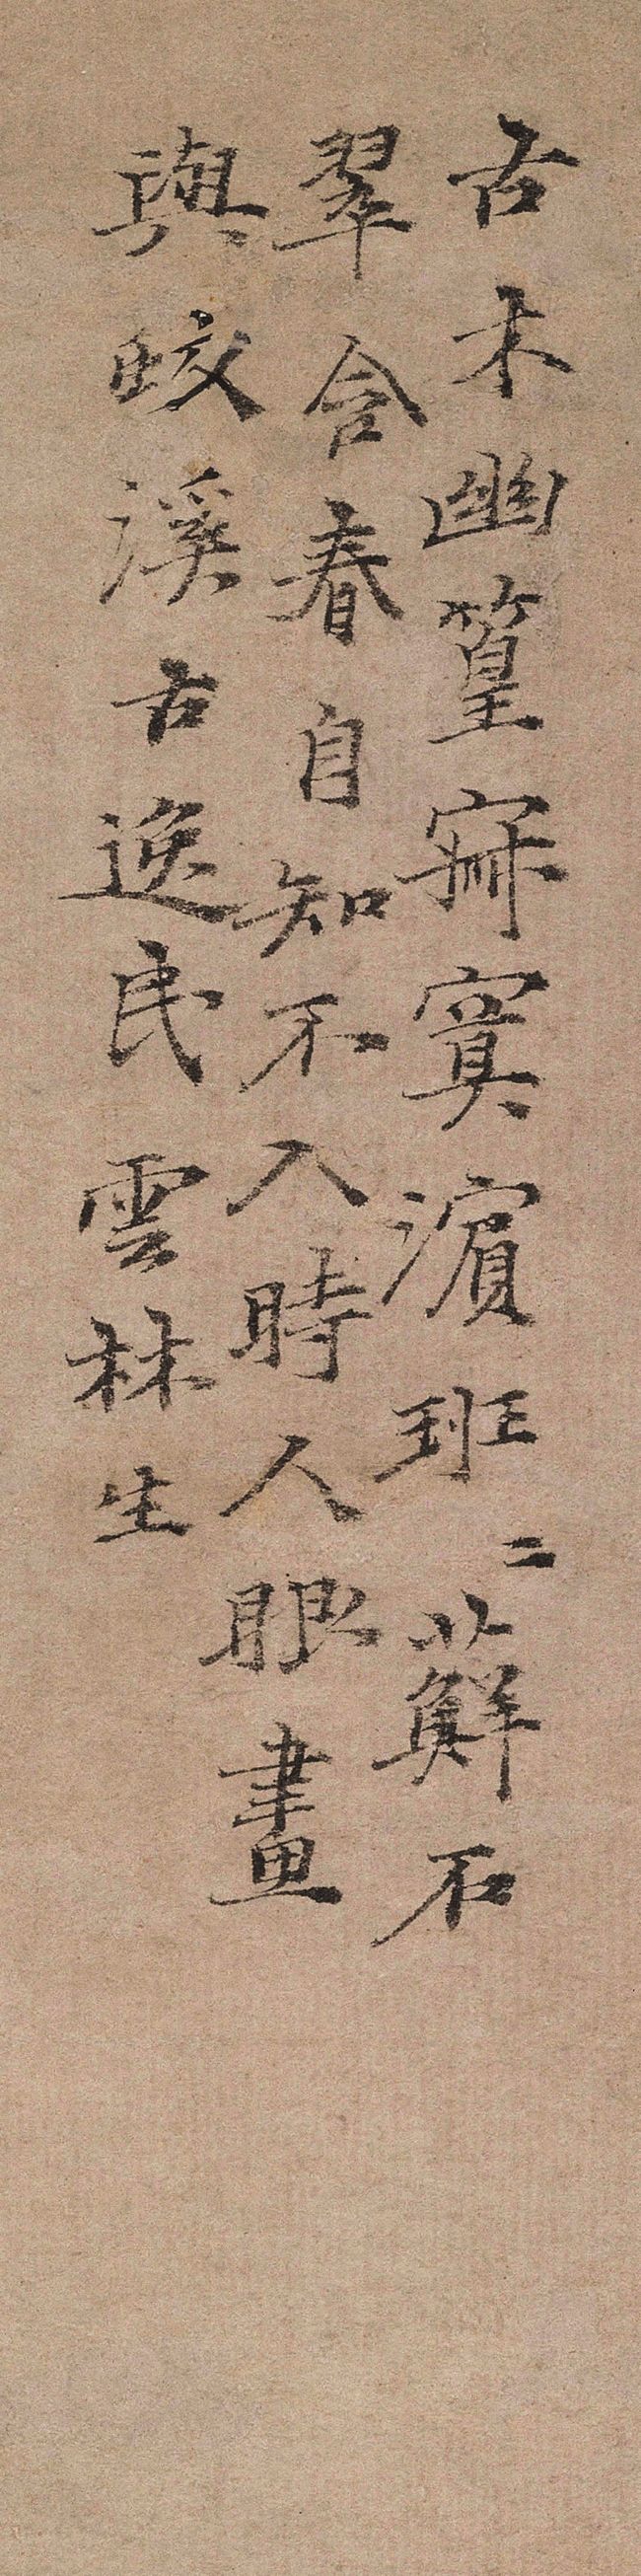 古木幽篁寂寞濵班〻蘚石
翠含春自知不入時人眼畫
與皎溪古逸民雲林生